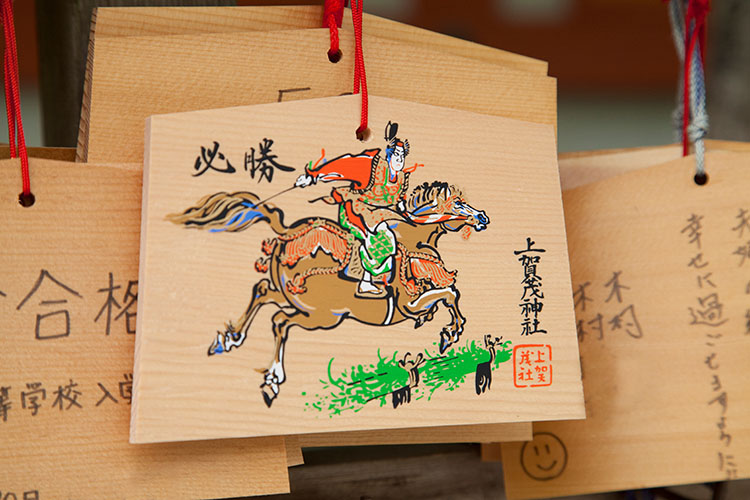 必勝
上賀茂神社
合格
等学校 入学
幸せに過ごせますように
木村
木村